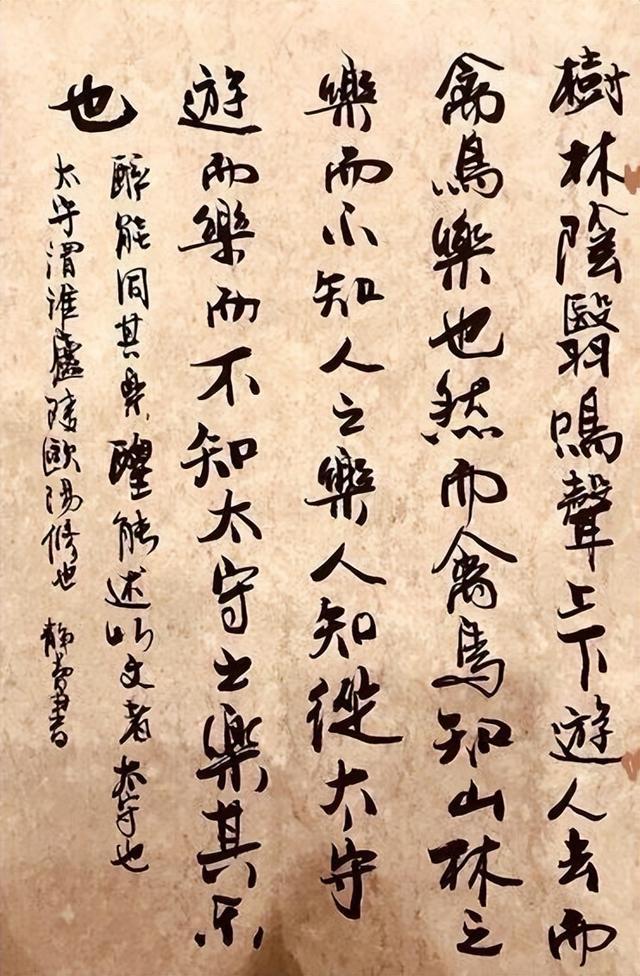 樹林陰翳鳴聲上下遊人去而
禽鳥樂也然而禽鳥知山林之
樂而不知人之樂人知從太守
遊而樂而不知太守之樂其乐
也
醉能同其樂醒能述以文者太守也
太守謂誰廬陵歐陽修也 靜書